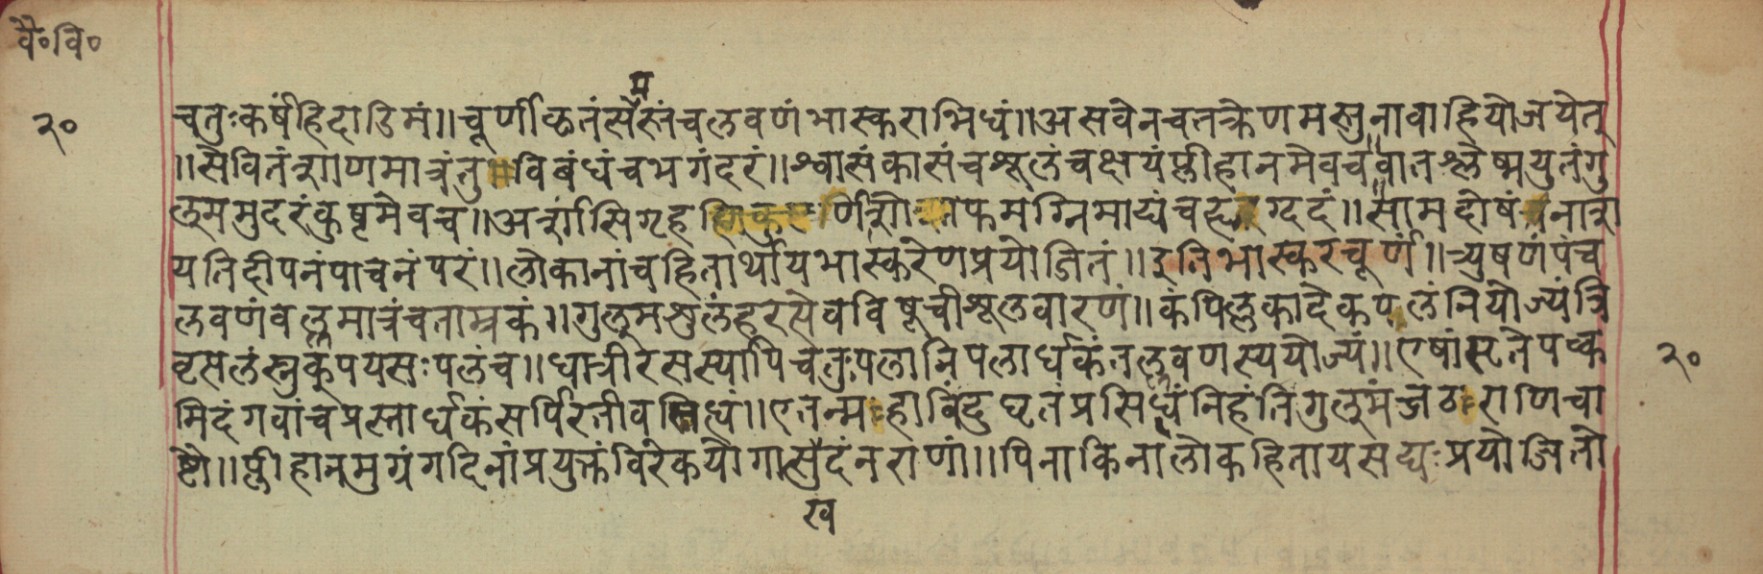 वै॰वि॰
प
२०
चतुःकर्षंहिदाडिमं॥चूर्णीकृतंसैस्तंचलवणंभास्कराभिधं॥असवेनचतक्रेणमस्तुनावाहियोजयेत्
॥सेवितंशाणमात्रंतुविबंधंचभगंदरं॥श्वासंकासंचश्रूलंचक्षयंप्लीहानमेवचवातश्लेष्मयुतंगु
लुममुदरंकुष्टमेवच॥अर्शांसिगृहअग्निमाद्यंचहृद्गदं॥सामदोषंनाशा
यतिदीपनंपाचनंपरं॥लोकानांचहितार्थायभास्करेणप्रयोजितं॥इतिभास्करचूर्णं॥त्र्युषणंपंच
लवणंवेल्लमात्रंचताम्रकं॥गुलुमश्रुलंहरसेवविषूचीश्रूलवारणं॥कंपिल्लकादेकपलंनियोज्यंत्रि
वृसलंस्नुक्पयसःपलंच॥धात्रीरसस्यापिचतुःपलानिपलार्धकंतल्लवणस्ययोज्यं॥एषांस्टतेपच्क
२०
मिदंगवांचप्रस्तार्धकंसर्पिरतीवसिध्यं॥एतन्महाबिंदुघृतंप्रसिध्धंनिहंतिगुलुमंजठराणिचा
ष्टौ॥प्लीहानमुग्रंगदिनांप्रयुक्तंविरेकयोगात्सुदंनराणां॥पिनाकिनालोकहितायसद्यःप्रयोजितो
ख